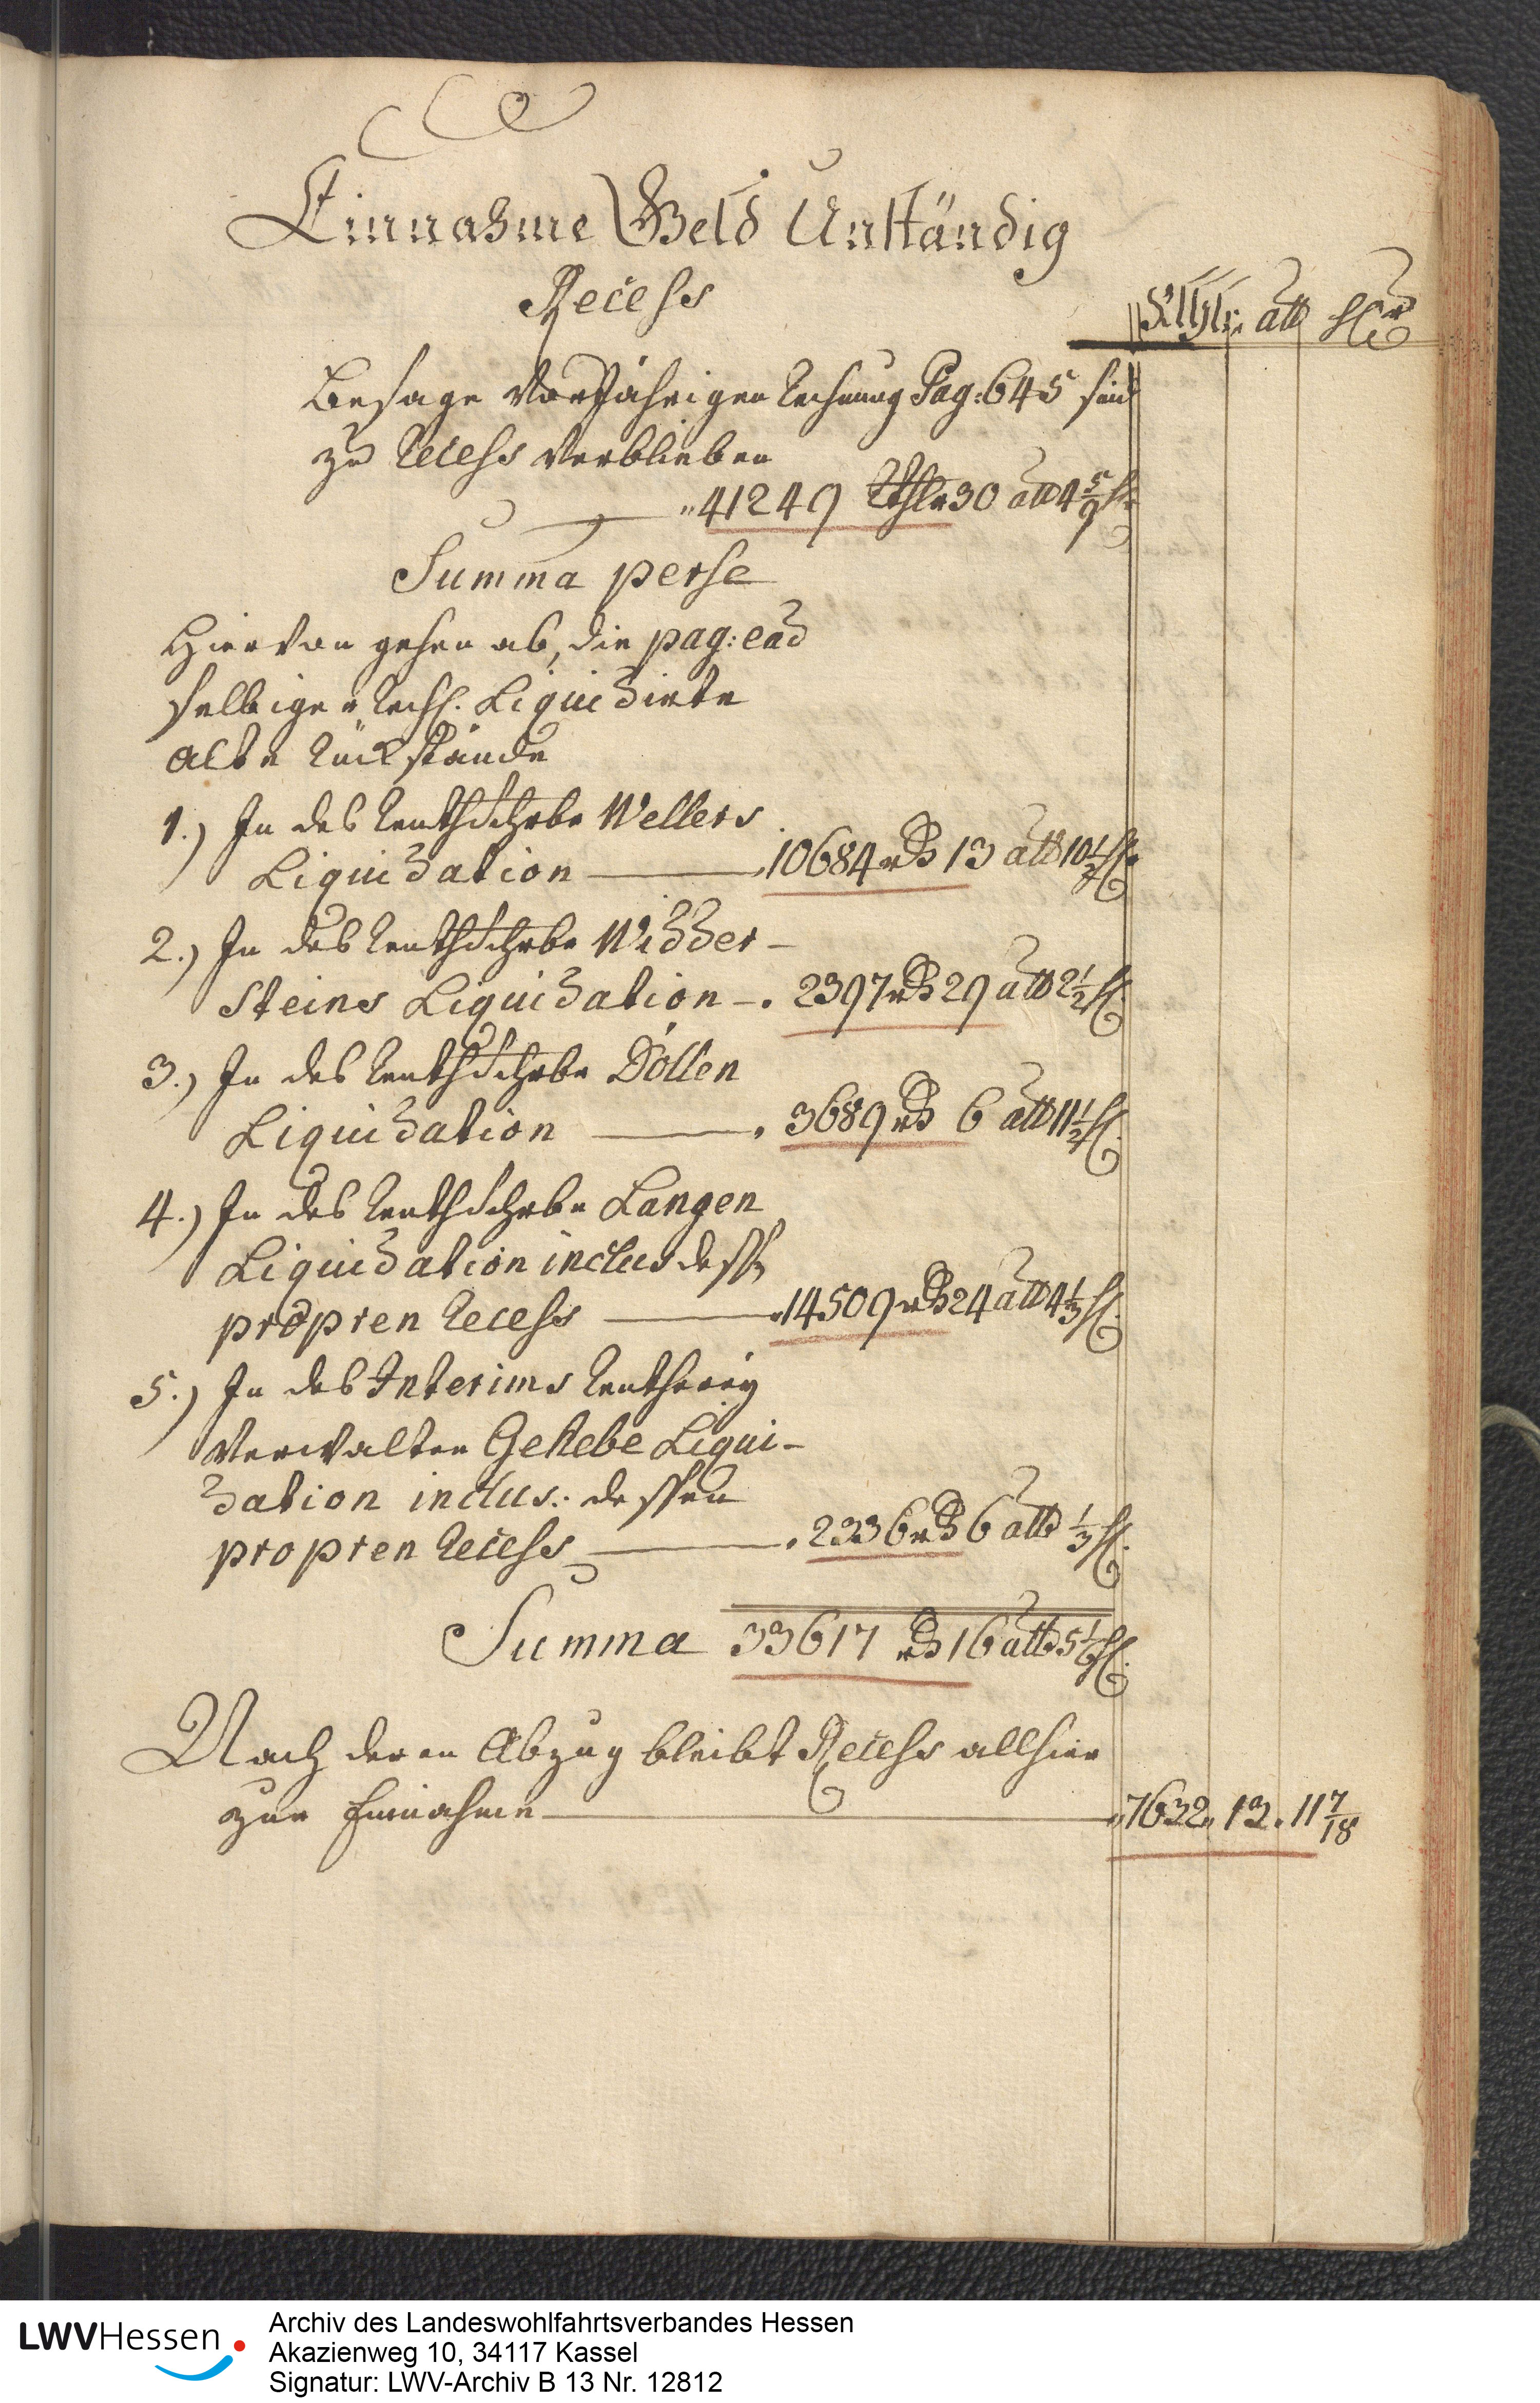 Einnahme Geld Unständig
Recess
Rthlr. alb hlr
Besage Vorjährigen Rechnung Pag: 645 sind
zu Recess Verblieben
41249 Rthlr 30 alb 4 5/9 hlr
Summa perse
Hiervon gehen ab, die pag: ead
selbiger Rech. Liquidirte
alte Rückstände
1.) In des Renthschrbr Wellers
Liquidation 10684 rth 13 alb 10 1/2 hl.
2.) In des Renthschrbr Widder-
steins Liquidation 2397 rth 29 alb 2 1/2 hl.
3.) In des Renthschrbr Döllen
Liquidation 3689 rth 6 alb 11 1/2 hl.
4.) In des Renthschrbr Langen
Liquidation inclus dessen
propren Recess 14509 rth 24 alb 4 1/3 hl.
5.) In des Interims Rentherey
Verwalter Gestebe Liqui-
dation inclus.. dessen
propren Recess 2336 rth 6 alb 1/3 hl.
Summa 33617 rth 16 alb 5 1/6 hl.
Nach deren Abzug bleibt Recess allhier
zur Einnahme 7632. 13. 11 7/18
LWVHessen
Archiv des Landeswohlfahrtsverbandes Hessen
Akazienweg 10, 34117 Kassel
Signatur: LWV-Archiv B 13 Nr. 12812